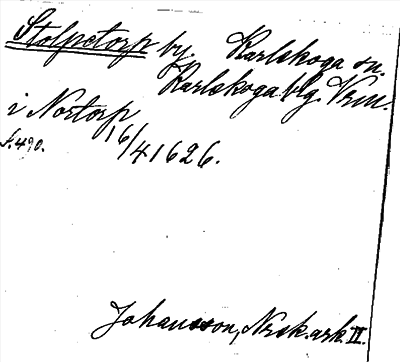 Stolpetorp by. Karlskoga sn.
Karlskoga blg. Vrm.
i Nortorp
s. 490.
16/4 1626.
Johansson, Nrsk. ark. II.